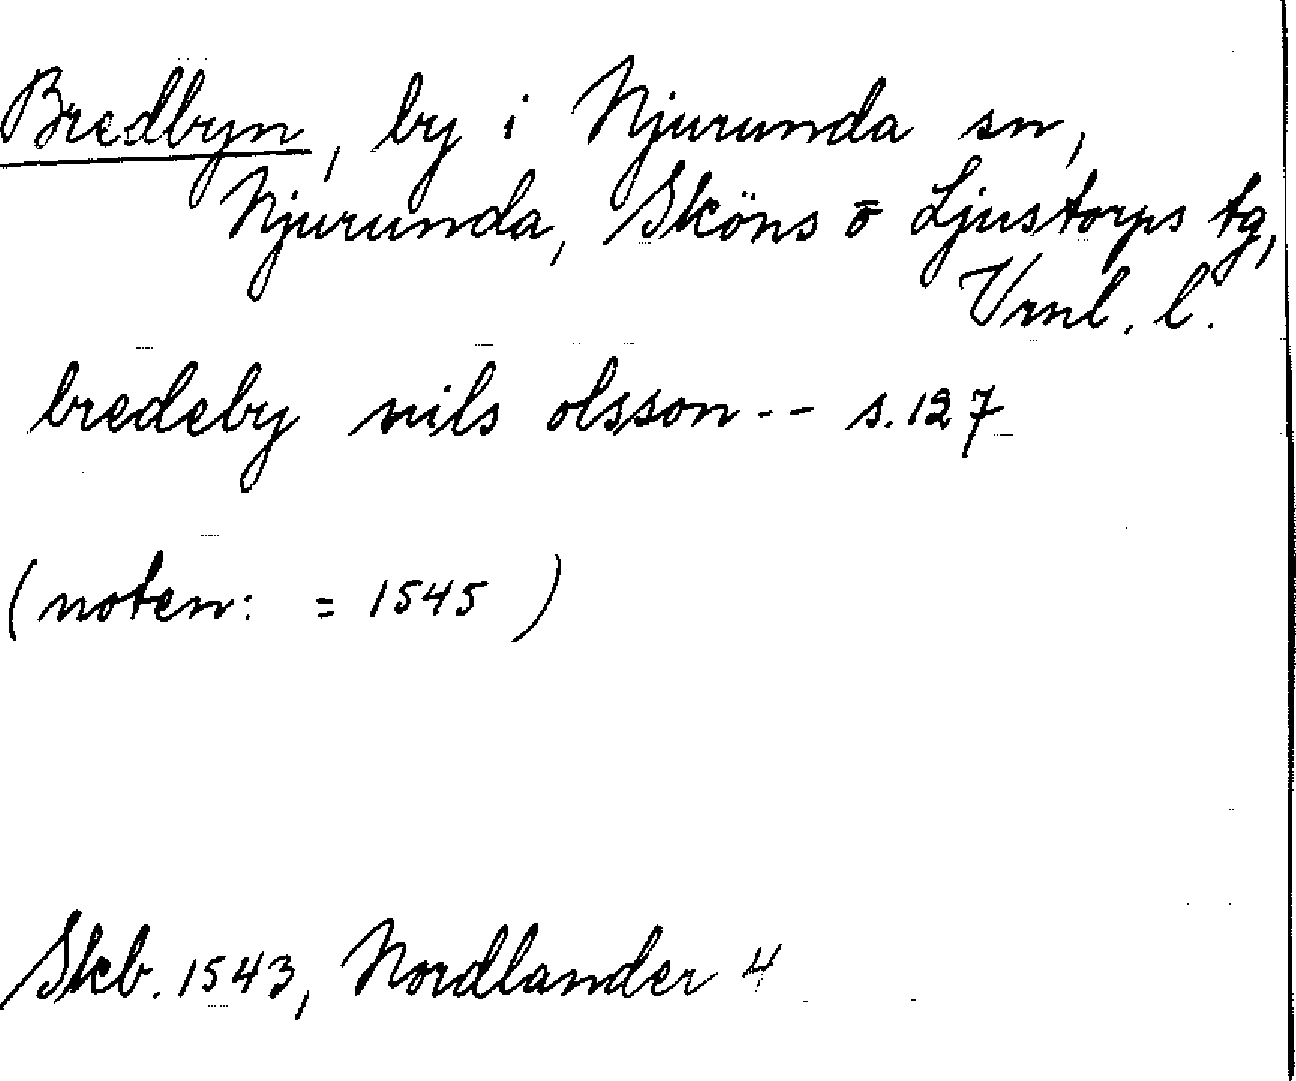 Bredbyn, by i Njurunda sn,
Njurunda, Sköns o Ljustorps tg,
Vrnl. l.
bredeby nils olsson -- s. 127
(noten: = 1545)
Skb. 1543, Nordlander 4